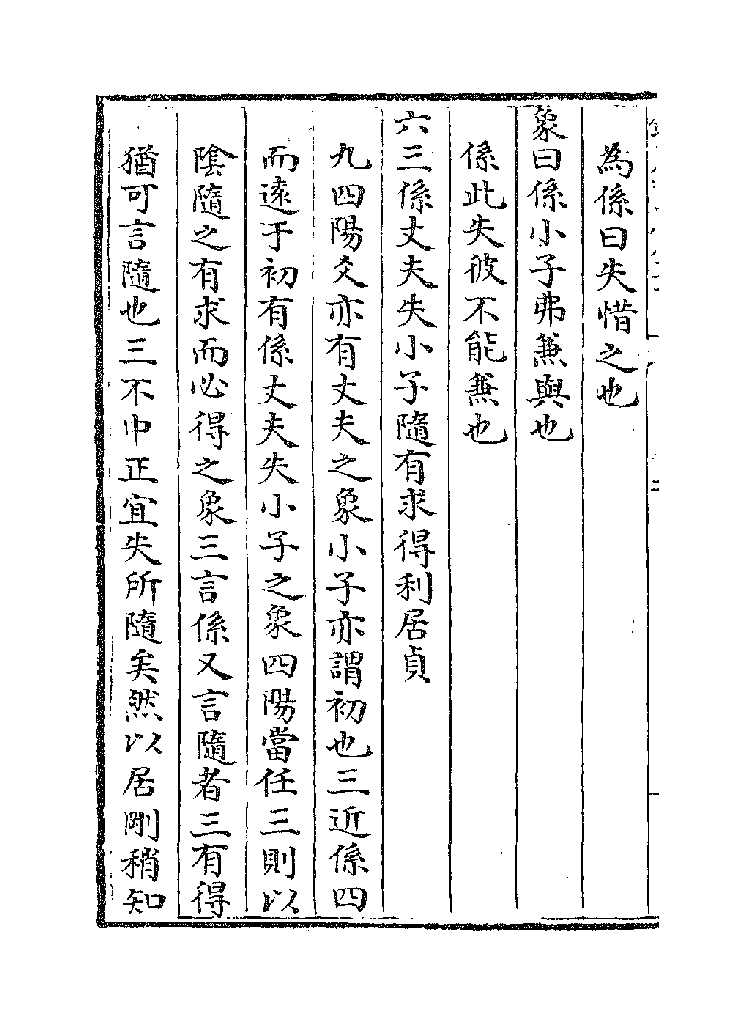 為係曰失惜之也
象曰係小子弗兼與也
係此失彼不能兼也
六三係丈夫失小子隨有求得利居貞
九四陽爻亦有丈夫之象小子亦謂初也三近係四
而遠于初有係丈夫失小子之象四陽當任三則以
陰隨之有求而必得之象三言係又言隨者三有得
猶可言隨也三不中正宜失所隨矣然以居剛稍知